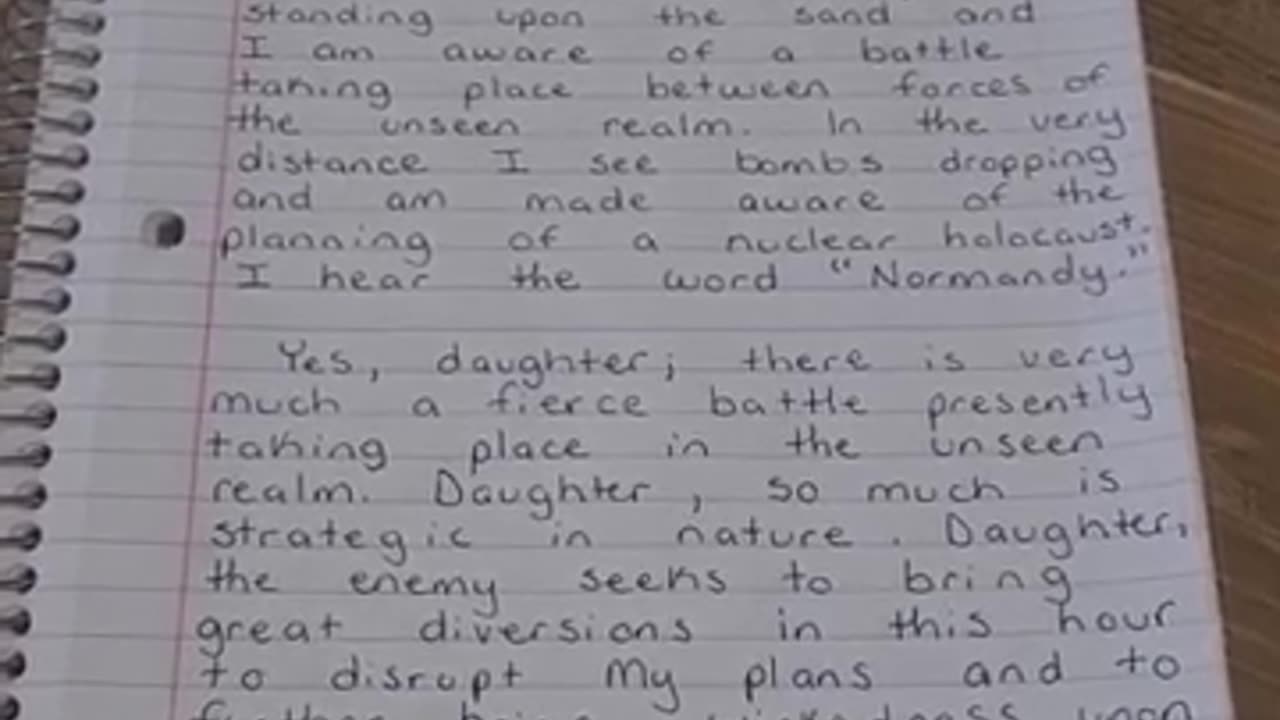 standing upon the sand and
I am aware of a battle
taking place between forces of
the unseen realm. In the very
distance I see bombs dropping
and am made aware of the
planning of a nuclear holocaust.
I hear the word "Normandy."
Yes, daughter; there is very
much a fierce battle presently
taking place in the unseen
realm. Daughter, so much is
strategic in nature. Daughter,
the enemy seeks to bring
great diversions in this hour
to disrupt My plans and to
upon